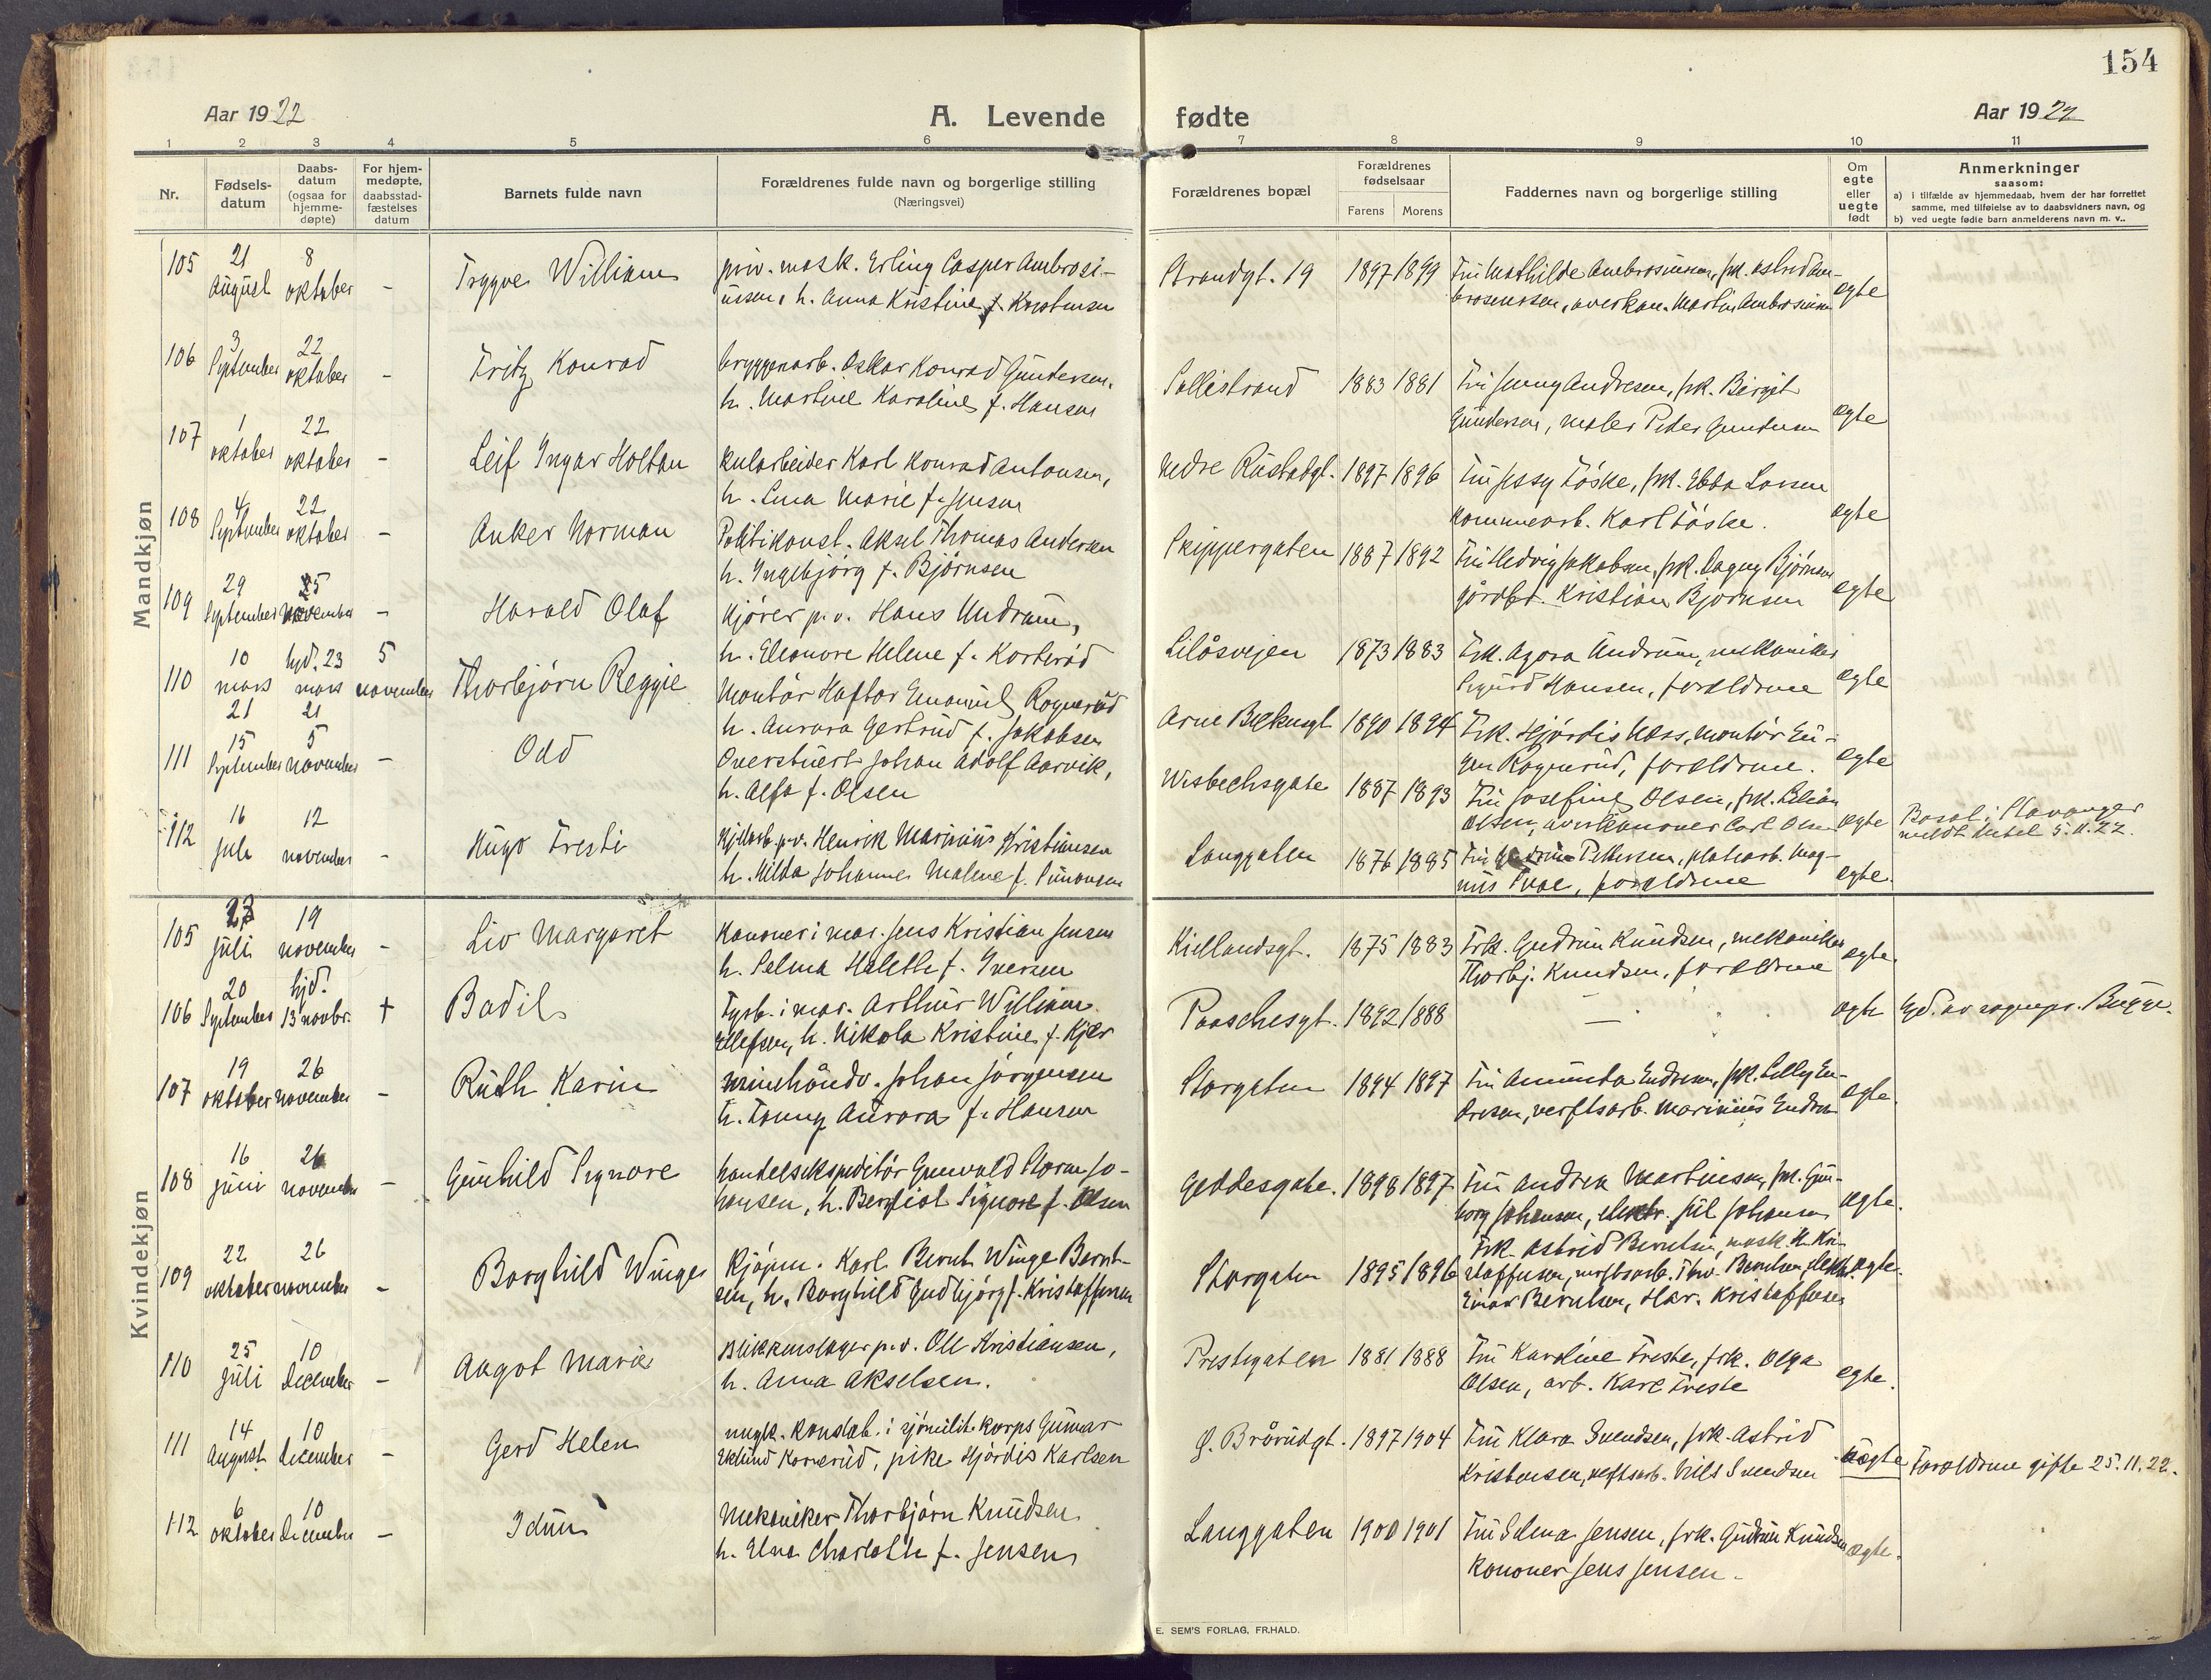 154
Aar 1922
A. Levende fødte
Aar 1922
1 2 3 4 5 6 7 8 9 10 11
Nr.
Fødsels-
datum
Daabs-
datum
(ogsaa for
hjemme-
døpte)
For hjem-
medøpte,
daabsstad-
fæstelses
datum
Barnets fulde navn
Forældrenes fulde navn og borgerlige stilling
(Næringsvei)
Forældrenes bopæl
Forældrenes
fødselsaar
Farens Morens
Faddernes navn og borgerlige stilling
Om
egte
eller
uegte
født
Anmerkninger
saasom:
a) i tilfælde av hjemmedaab, hvem der har forrettet
samme, med tilføielse av to daabsvidners navn, og
b) ved uegte fødte barn anmelderens navn m. v..
Mandkjøn
105 21 august 8 oktober - Trygve William
priv. mask. Erling Casper Ambrosi-
ussen, h. Anna Kristine f. Kristensen
Strandgt. 19 1897 1899
Fru Mathilde Ambrosiussen, frk. Astrid Am-
brosiussen, Martin Ambrosiussen
egte
106 3 September 22 oktober - Fritz Konrad
bryggearb. Oskar Konrad Gundersen,
h. Martine Karoline f. Hansen
Sollistrand 1883 1881
Fru Jenny Andresen, frk. Birgit
Gundersen, maler Peder Gundersen
egte
107 1 oktober 22 oktober - Leif Ingar Holtan
kularbeider Karl Konrad Antonsen,
h. Lina Marie f. Jensen
Nedre Rustadgt. 1897 1896
Fru Jessy Föske, frk. Ebba Larsen
kommunearb. Karl Föske.
egte
108 4 September 22 oktober - Anker Norman
Politikonst. Aksel Thomas Andersen
h. Ingebjørg f. Bjørnsen
Skippergaten 1887 1892
Fru Hedvig Jakobsen, frk. Dagny Bjørnsen
gårdbr. Kristian Bjørnsen
egte
109 29 September 5 November - Harald Olaf
Kjører p.v. Hans Undrum,
h. Eleonore Helene f. Korterød
Lilåsvejen 1873 1883
Frk. Agora Undrum, mekaniker
Sigurd Hansen, forældrene
egte
110 10 mars 21 hjd. 23 mars 21 5 november Thorbjørn Reggie
Montör Haftor Emanuel Rognerud
h. Aurora Gertrud f. Jakobsen
Arne Bilkusgt 1890 1894
Frk. Hjørdis Næss, montör Eu-
gen Rognerud, forældrene.
egte
111 15 September 5 november - Odd
Overstuert Johan Adolf Aarvik,
h. Alfa f. Olsen
Wisbechsgate 1887 1893
Fru Josefine Olsen, frk. Lilian
Olsen, Carl Olsen
egte
Bosat i Stavanger
meldt 5.11.22.
112 16 juli 12 november - Hugo Tresti
p.v. Henrik Marinius Kristiansen
h. Hilda Johanne Malene f. Simonsen
Langgaten 1876 1885
Fru Pettersen, platearb. Mag-
nus Svae, forældrene
egte.
Kvindekjøn
105 23 juli 19 november - Liv Margaret
Kanoner i mar. Jens Kristian Jensen
h. Selma Halette f. Iversen
Kiellandsgt. 1875 1883
Frk. Gudrun Knudsen, mekaniker
Thorbj. Knudsen, forældrene
egte.
106 20 September hjd. 13 novbr. † Bodil
Fyrb. i mar. Arthur William
Ellefsen, h. Nikola Kristine f. Kjær
Paaschesgt. 1892 1888
—
egte
Hjd. av sognepr. Bugge.
107 19 oktober 26 november - Ruth Karin
minehåndv. Johan Jørgensen
h. Fanny Aurora f. Hansen
Storgaten 1894 1897
Fru Amunda Endresen, frk. Lilly En-
dresen, verftsarb. Marinius Endresen
egte.
108 16 juni 26 november - Gunhild Signore
handelsekspeditör Gunvald Storm Jo-
hansen, h. Bergliot Signore f. Olsen
Geddesgate. 1898 1897
Fru Andrea Martinsen, frk. Gun-
borg Johansen, elektr. Jul Johansen
egte.
109 22 oktober 26 november - Borghild Winge
Kjøpm. Karl Bernt Winge Bernt-
sen, h. Borghild Gudbjørg f. Kristoffersen
Storgaten 1895 1896
Frk. Astrid Berntsen, mask. H. Kri-
stoffersen, verftsarb. Thv. Berntsen, elektr.
Einar Berntsen, Har. Kristoffersen
egte.
110 25 juli 10 December - Aagot Marie
Blikkenslager p.v. Ole Kristiansen,
h. Anna Akselsen.
Prestegaten 1881 1888
Fru Karoline Treste, frk. Olga
Olsen, arb. Karl Treste
egte.
111 14 August 10 December - Gerd Helen
ungk. konstab. i sjömilit. korps Gunnar
Eklund Korrerud, pike Hjördis Karlsen
G. Brårudgt. 1897 1904
Fru Klara Svendsen, frk. Astrid
Kristensen, verftsarb. Nils Svendsen
uegte
Forældrene gifte 25.11.22.
112 6 oktober 10 December - Idun
Mekaniker Thorbjörn Knudsen
h. Elna Charlotte f. Jensen
Langgaten 1900 1901
Fru Selma Jensen, frk. Gudrun Knudsen
Kanoner Jens Jensen.
egte.
E. SEM'S FORLAG, FR.HALD.